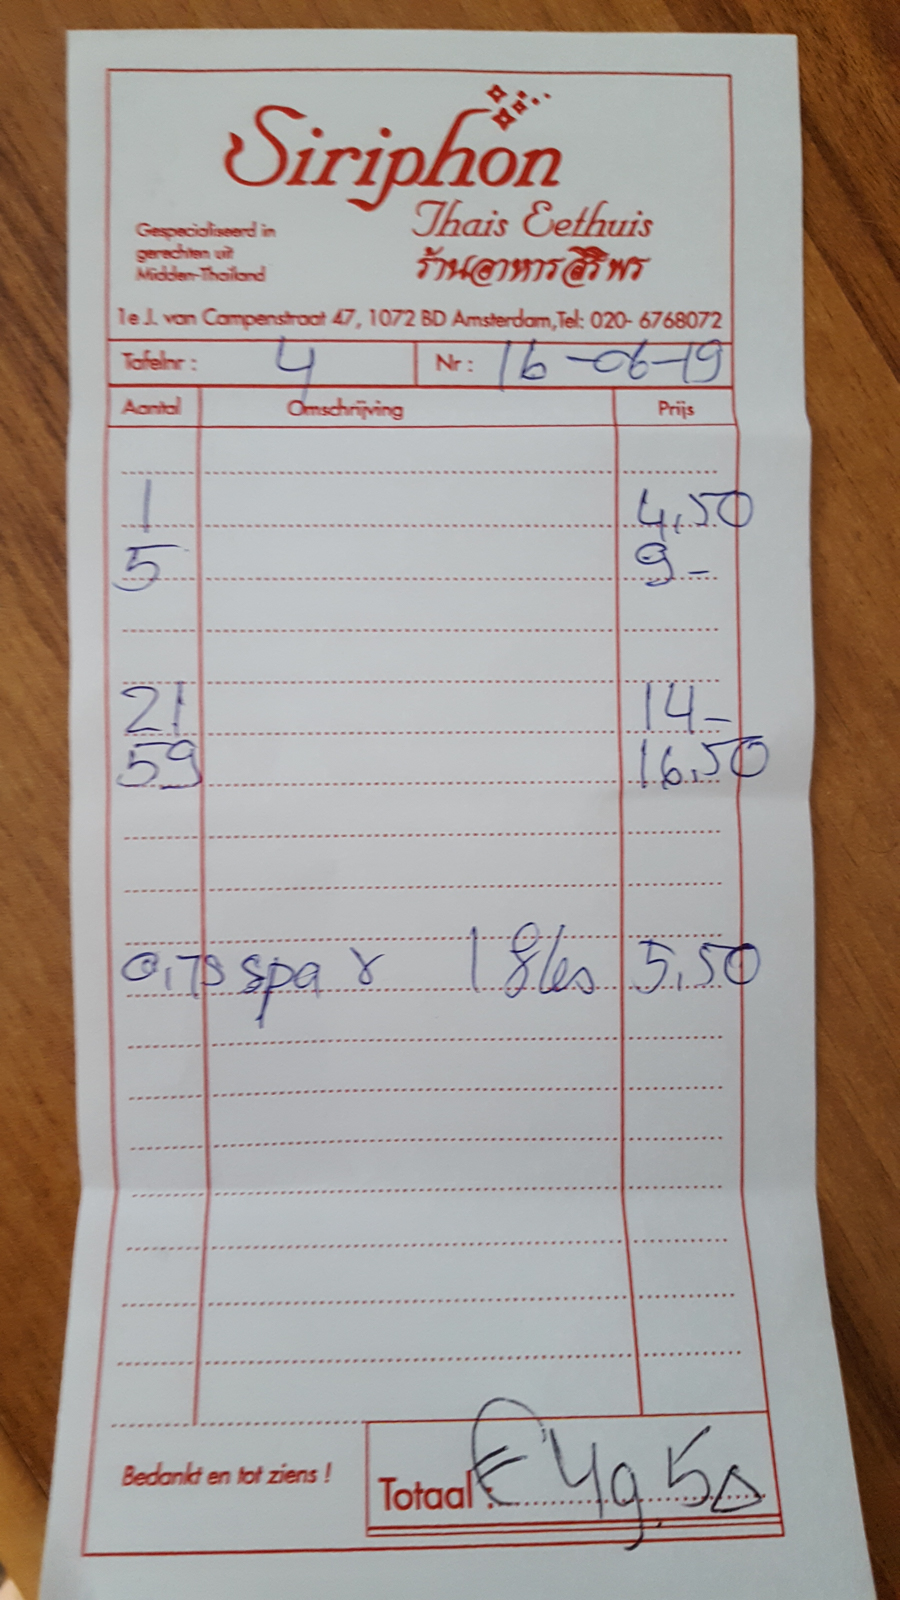 Siriphon
Thais Eethuis
Gespecialiseerd in
gerechten uit
Midden-Thailand
ร้านอาหารสิริพร
1e J. van Campenstraat 47, 1072 BD Amsterdam, Tel: 020- 6768072
Tafelnr : 4 Nr : 16-06-19
Aantal Omschrijving Prijs
1 4,50
5 9-
21 14-
59 16,50
0,75 spa r 1 fles 5,50
Bedankt en tot ziens !
Totaal : € 49.50